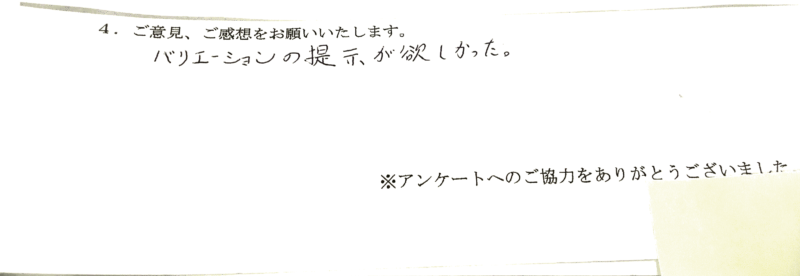 4. ご意見、ご感想をお願いいたします。
バリエーションの提示、が欲しかった。
※アンケートへのご協力をありがとうございました